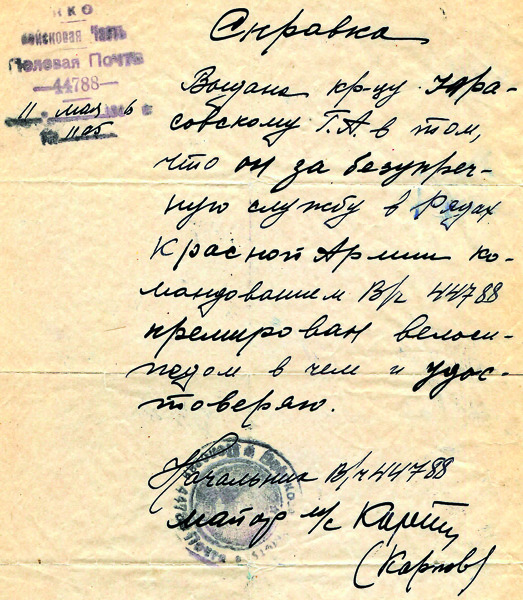 НКО
Войсковая Часть
Полевая Почта
—44788—
11 мая 6
Справка
Выдана кр-цу Тара-
совскому Г.А в том,
что он за безупреч-
ную службу в Рядах
Красной Армии ко-
мандованием В/ч 44788
премирован велоси-
педом в чем и удос-
товеряю.
Начальник В/ч 44788
майор м/с
(Карпов)